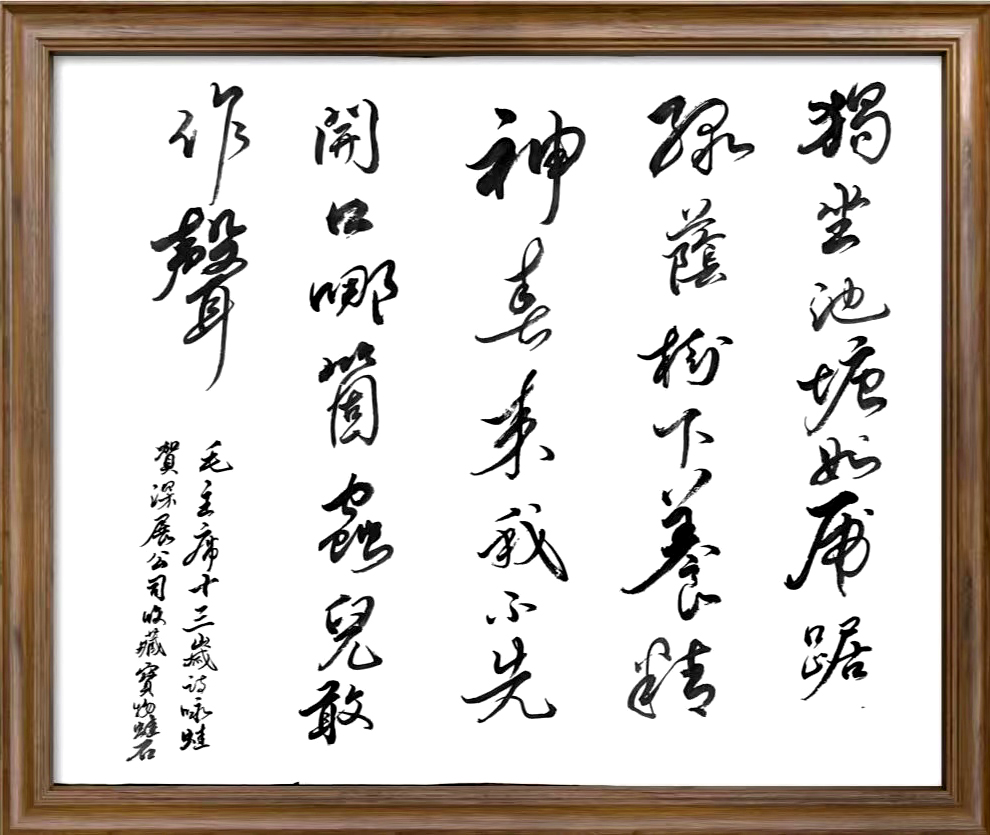 獨坐池塘如虎踞
綠蔭樹下養精
神春來我不先
開口哪箇蟲兒敢
作聲
毛主席十三歲詩咏蛙
賀深展公司收藏寶物蛙石